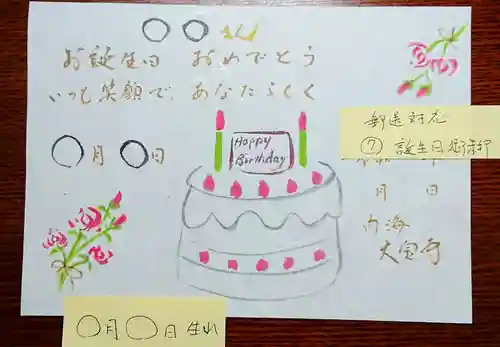 〇〇さん
お誕生日 おめでとう
いつも笑顔で、あなたらしく
〇月〇日
Happy
Birthday
郵送対応
⑦ 誕生日御朱印
月 日
内海
大宝寺
〇月〇日生れ